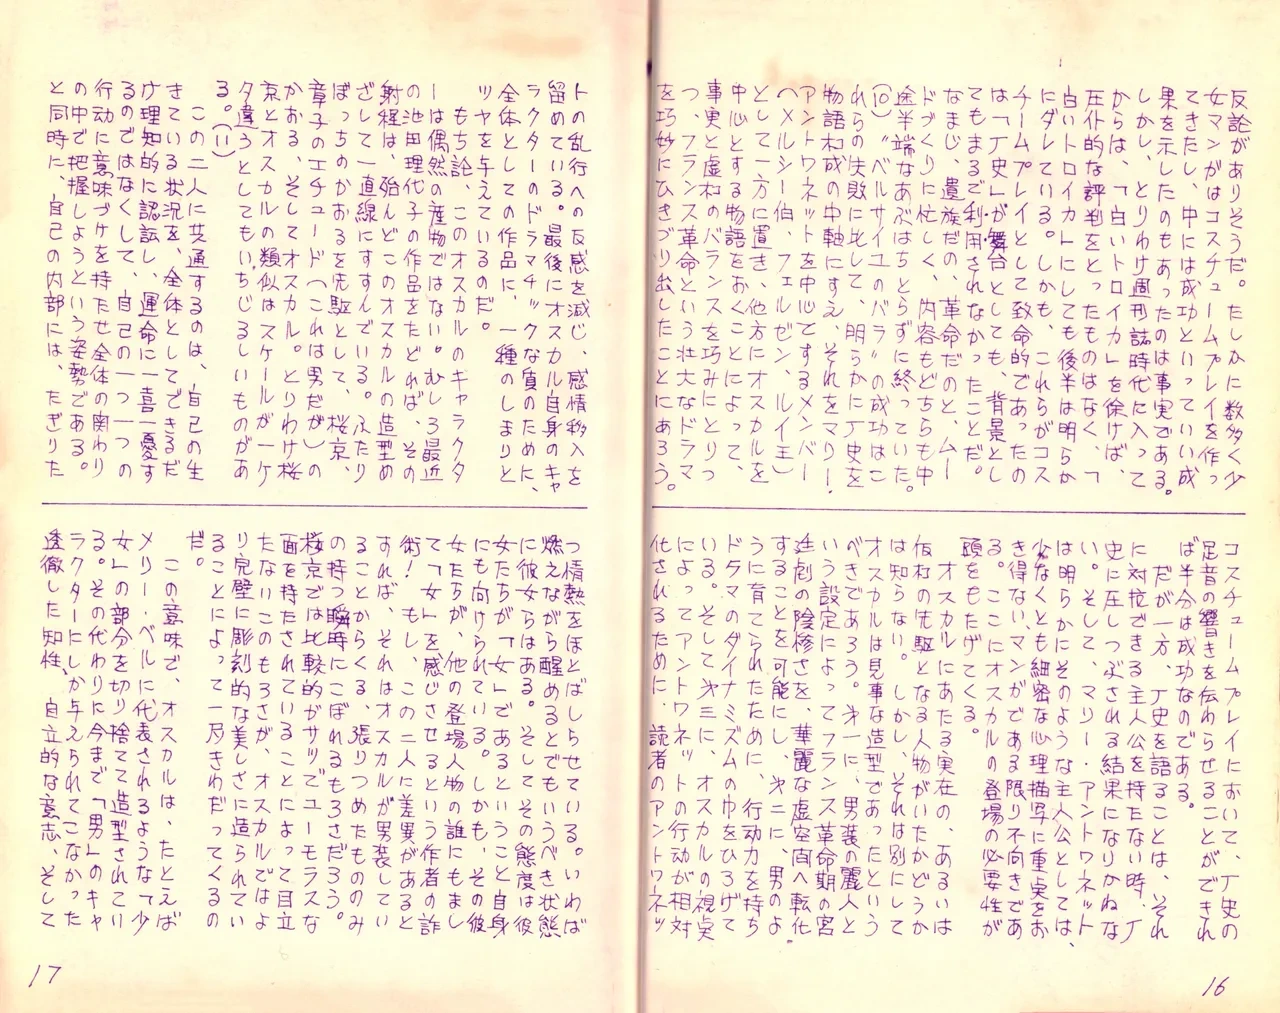 反論がありそうだ。たしかに数多く少
女マンガはコスチュームプレイを作っ
てきたし、中には成功といっていい成
果を示したのもあったのは事実である。
しかし、とりわけ週刊誌時代に入って
からは、「白いトロイカ」を徐けば、
圧仆的な評判をとったものはなく、「
白いトロイカ」にしても後半は明らか
にダレている。しかも、これらがコス
チームプレイとして致命的であったの
は「丁史」が舞台としても、背景とし
てもまるで利用されなかったことだ。
なまじ、遺族だの、革命だのと、ムー
ドづくりに忙しく、内容もどちらも中
途半端なあぶはちとらずに終っていた。
(10)〝ベルサイユのバラ〟の成功はこ
れらの失敗に比して、明らかに丁史を
物語构成の中軸にすえ、それをマリー・
アントワネットを中心でするメンバー
(メルシー伯、フェルゼン、ルイ王)
として一方に置き、他方にオスカルを
中心とする物語をおくことによって、
事実と虚构のバランスを巧みにとりつ
つ、フランス革命という壮大なドラマ
を巧妙にひきづり出したことにあろう。
コスチュームプレイにおいて、丁史の
足音の響きを伝わらせることができれ
ば半分は成功なのである。
だが一方、丁史を語ることは、それ
に対抗できる主人公を持たない時、丁
史に圧しつぶされる結果になりかねな
い。そして、マリー・アントワネット
は明らかにそのような主人公としては、
少なくとも細密な心理描写に重実をお
き得ないマンガである限り不向きであ
る。ここにオスカルの登場の必要性が
頭をもたげてくる。
オスカルにあたる実在の、あるいは
仮构の先駆となる人物がいたかどうか
は知らない。しかし、それは別にして
オスカルは見事な造型であったという
べきであろう。才一に、男装の麗人と
いう設定によってフランス革命期の宮
廷劇の陰惨さを、華麗な虚空间へ転化
することを可能にし、才二に、男のよ
うに育てられたために、行動力を持ち
ドラマのダイナミズムの巾をひろげて
いる。そして才三に、オスカルの視実
によってアントワネットの行動が相対
化されるために、読者のアントワネッ
16
トの乱行への反感を減じ、感情移入を
留めている。最後にオスカル自身のキャ
ラクターのドラマチックな質のために、
全体としての作品に、一種のしまりと
ツヤを与えているのだ。
もち論、このオスカルのキャラクタ
ーは偶然の産物ではない。むしろ最近
の池田理代子の作品をたどれば、その
射程は、殆んどこのオスカルの造型め
ざして一直線にすすんでいる。ふたり
ぼっちのかおるを先駆として、桜京、
章子のエチュード(これは男だが)の
かおる、そしてオスカル。とりわけ桜
京とオスカルの類似はスケールが一ケ
タ違うとしてもいちじるしいものがあ
る。(11)
この二人に共通するのは、自己の生
きている状況を、全体としてできるだ
け理知的に認訟し、運命に一喜一憂す
るのではなくして、自己の一つ一つの
行動に意味づけを持たせ全体の関わり
の中で把握しようという姿勢である。
と同時に、自己の内部には、たぎりた
つ情熱をほとばしらせている。いわば
燃えながら醒めるとでもいうべき状態
に彼女らはある。そしてその態度は彼
女たちが「女」であるということ自身
にも向けられている。しかも、その彼
女たちが、他の登場人物の誰にもまし
て「女」を感じさせるという作者の詐
術!もし、この二人に差異があると
すれば、それはオスカルが男装してい
ることからくる、張りつめたもののみ
の持つ瞬時にこぼれるもろさだろう。
桜京では比較的ガサツでユーモラスな
面を持たされていることによって目立
たないこのもろさが、オスカルではよ
り完璧に彫刻的な美しさに造られてい
ることによって一段きわだってくるの
だ。
この意味で、オスカルは、たとえば
メリー・ベルに代表されるような「少
女」の部分を切り捨てて造型されてい
る。その代わりに今まで「男」のキャ
ラクターにしか与えられてこなかった
透徹した知性、自立的な意志、そして
17